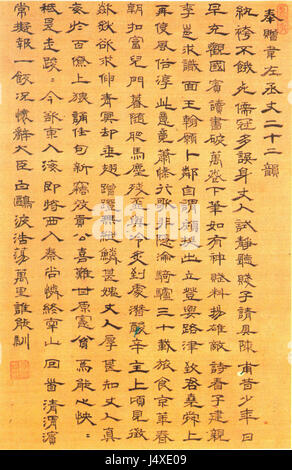 奉贈韋左丞丈二十二韻
紈袴不餓死儒冠多誤身丈人試靜聽賤子請具陳甫昔少年日
早充觀國賓讀書破萬卷下筆如有神賦料揚雄敵詩看子建親
李邕求識面王翰願卜鄰自謂頗挺出立登要路津致君堯舜上
再使風俗淳此意竟蕭條行歌非隱淪騎驢三十載旅食京華春
朝扣富兒門暮隨肥馬塵殘杯與冷炙到處潛悲辛主上頃見徵
欻然欲求伸青冥卻垂翅蹭蹬無縱鱗甚愧丈人厚甚知丈人真
每於百僚上猥誦佳句新竊效貢公喜難甘原憲貧焉能心怏〻
祇是走踆〻今欲東入海即將西去秦尚憐終南山回首清渭濱
常擬報一飯況懷辭大臣白鷗沒浩蕩萬里誰能馴